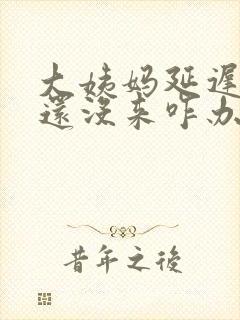 大姨妈延遲
還没来咋办
昔年之後